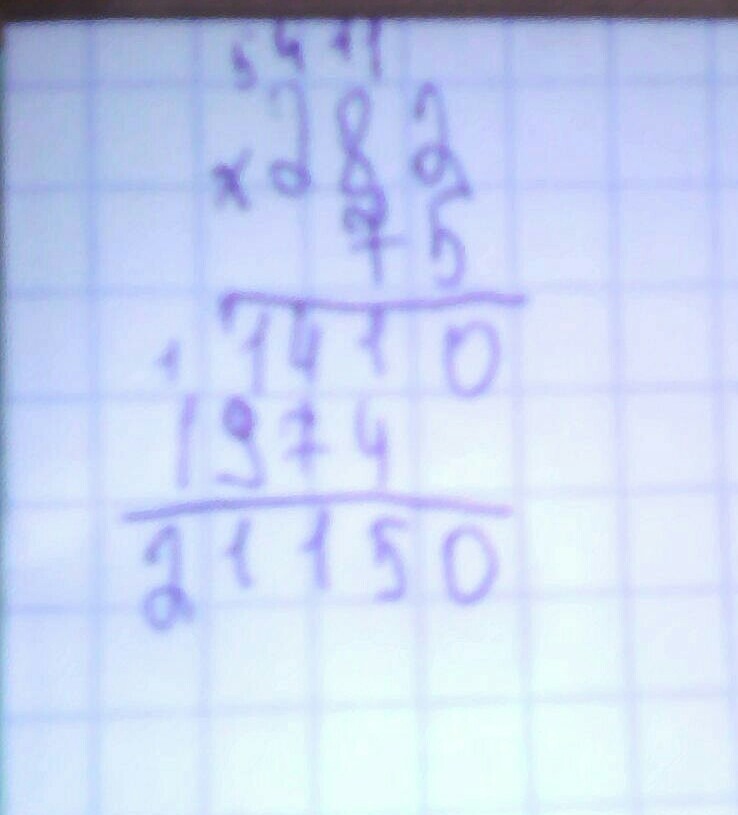 5 4 1 1
×282
75
1410
1
1974
21150